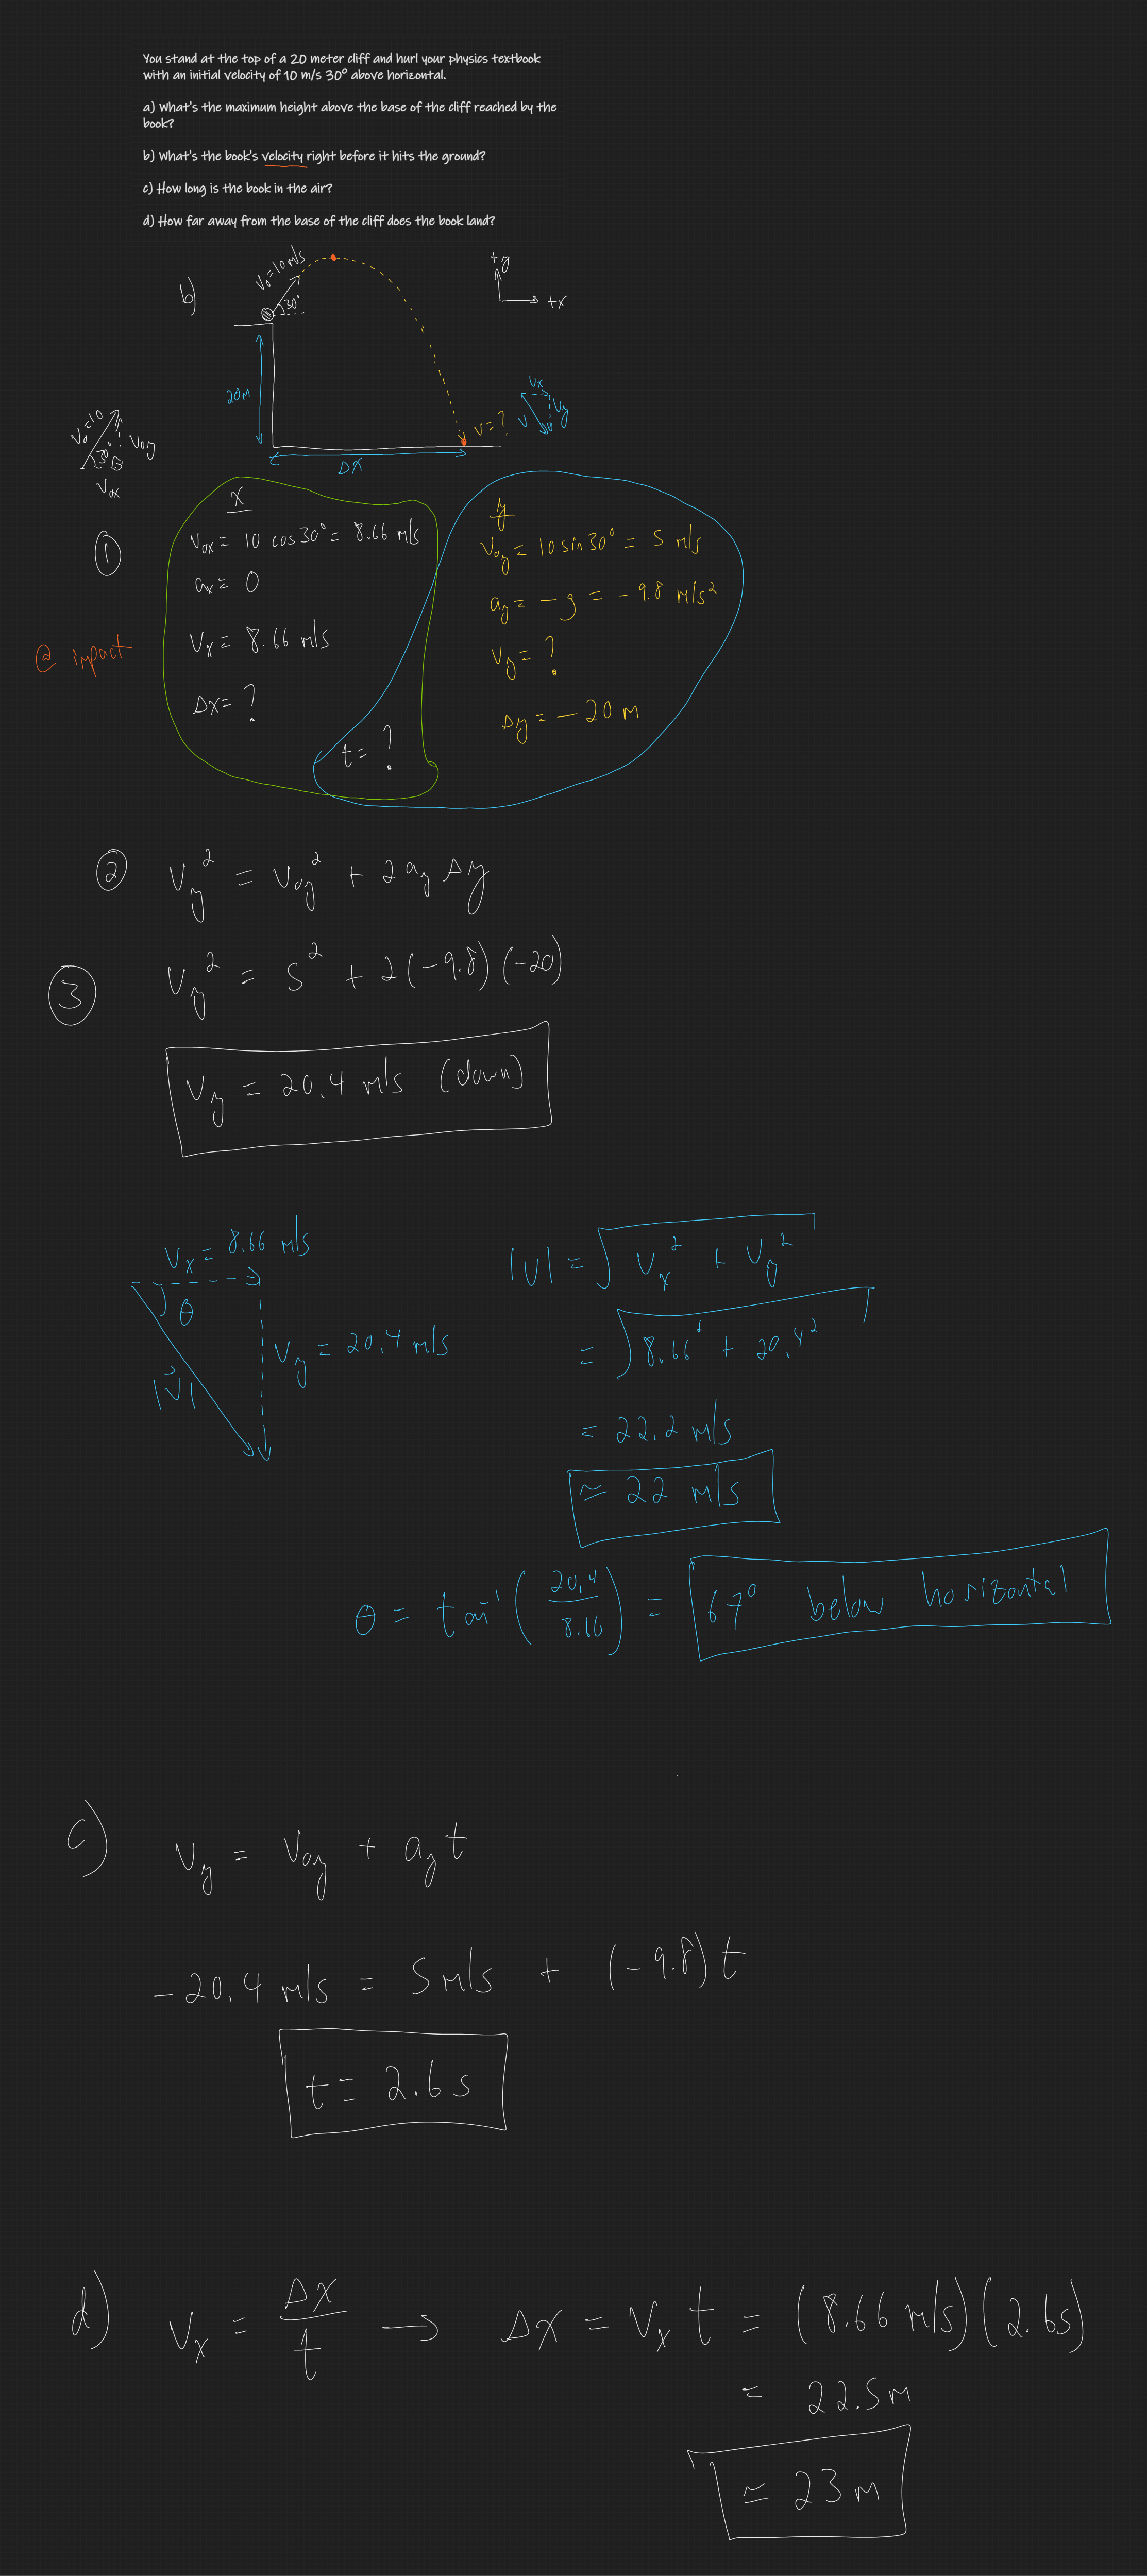 You stand at the top of a 20 meter cliff and hurl your physics textbook
with an initial velocity of 10 m/s 30° above horizontal.
a) What's the maximum height above the base of the cliff reached by the
book?
b) What's the book's velocity right before it hits the ground?
c) How long is the book in the air?
d) How far away from the base of the cliff does the book land?
b)
V₀=10 m/s
30°
+y
+x
20m
V=?
Δx
Vx
V
Vy
V₀=10
30°
V₀y
V₀x
①
x
V₀x = 10 cos30° = 8.66 m/s
ax = 0
@ impact
Vx = 8.66 m/s
Δx = ?
t = ?
y
V₀y = 10 sin30° = 5 m/s
ay = -g = -9.8 m/s²
Vy = ?
Δy = -20 m
② Vy² = V₀y² + 2ayΔy
③ Vy² = 5² + 2(-9.8)(-20)
Vy = 20.4 m/s (down)
Vx = 8.66 m/s
θ
Vy = 20.4 m/s
|V⃗|
|V| = √Vx² + Vy²
= √8.66² + 20.4²
= 22.2 m/s
≃ 22 m/s
θ = tan⁻¹(20.4/8.66) = 67° below horizontal
c) Vy = V₀y + ayt
-20.4 m/s = 5 m/s + (-9.8)t
t = 2.6 s
d) Vx = Δx/t → Δx = Vx t = (8.66 m/s)(2.6s)
= 22.5 m
≃ 23 m